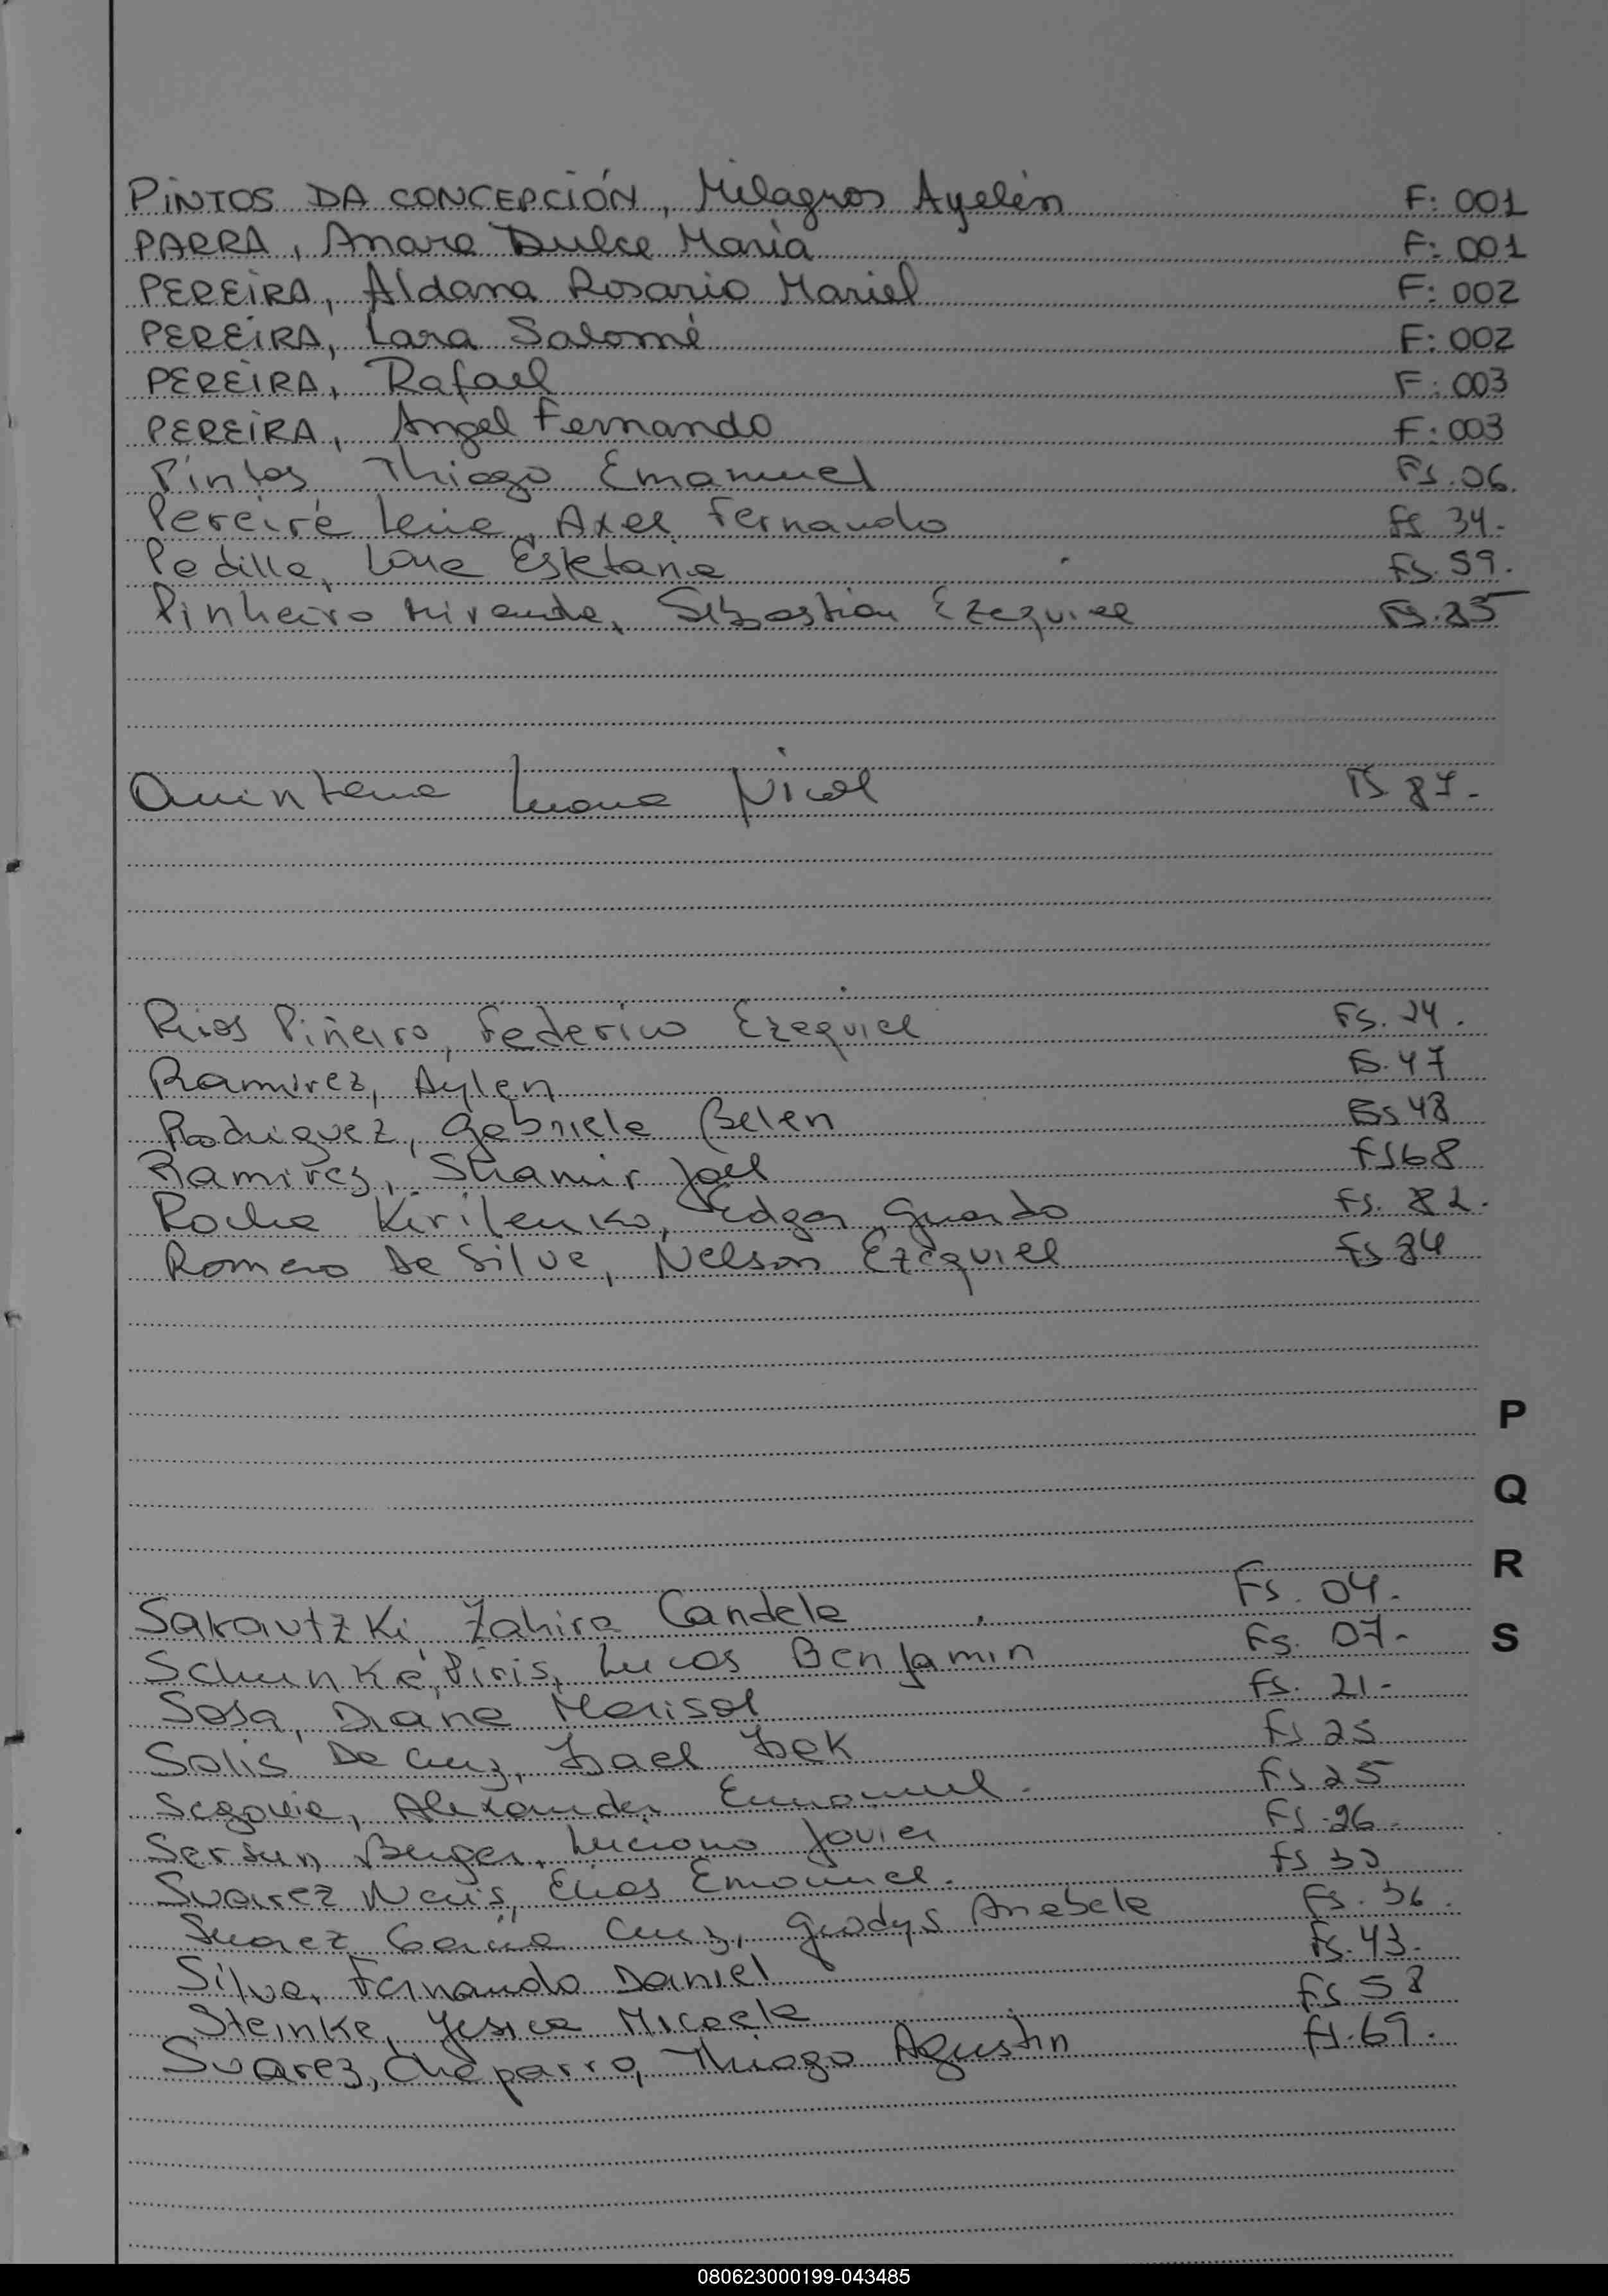 PINTOS DA CONCEPCIÓN, Milagros Ayelén F: 001
PARRA, Anara Dulce María F: 001
PEREIRA, Aldana Rosario Mariel F: 002
PEREIRA, Lara Salomé F: 002
PEREIRA, Rafael F: 003
PEREIRA, Angel Fernando F: 003
Pintos Thiago Emanuel Fs. 06.
Pereira Axel Fernando Fs 34.
Padilla, Fs. 59.
Pinheiro Miranda, Sebastian Ezequiel
Quintana Luana Nicol Fs 87.
Rios Piñeiro, Federico Ezequiel Fs. 24.
Ramirez, Aylen Fs. 47
Rodriguez, Gabriela Belen Fs 48
Ramirez, Shamir Joel Fs 68
Rocha Kirilenko, Edgar Fs. 82.
Romero De Silva, Nelson Ezequiel Fs 84
P
Q
R
Sakautzki Zahira Candela Fs. 04.
Schunke Piris, Lucas Benjamin Fs. 07.
S
Sosa, Diana Marisol Fs. 21.
Solis De Cruz, Fs 25
Segovia, Alexander Emanuel. Fs 25
Berger, Luciano Javier Fs 26
Suarez Elias Emanuel. Fs 30
Suarez Cruz, Gladys Anabela Fs. 36.
Silva, Fernando Daniel Fs. 43.
Steinke, Yesica Micaela Fs 58
Suarez, Chaparro, Thiago Agustin Fs. 69.
080623000199-043485